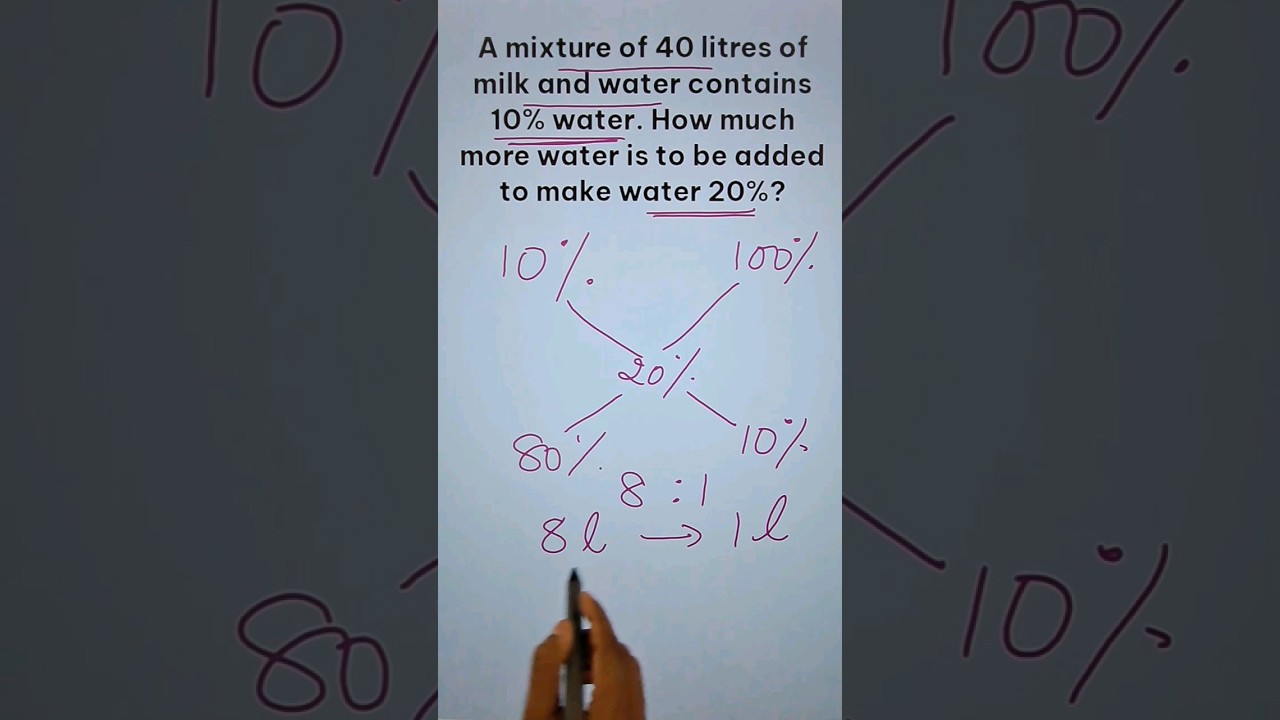 A mixture of 40 litres of
milk and water contains
10% water. How much
more water is to be added
to make water 20%?
10% 100%
20%
80% 10%
8 : 1
8l → 1l